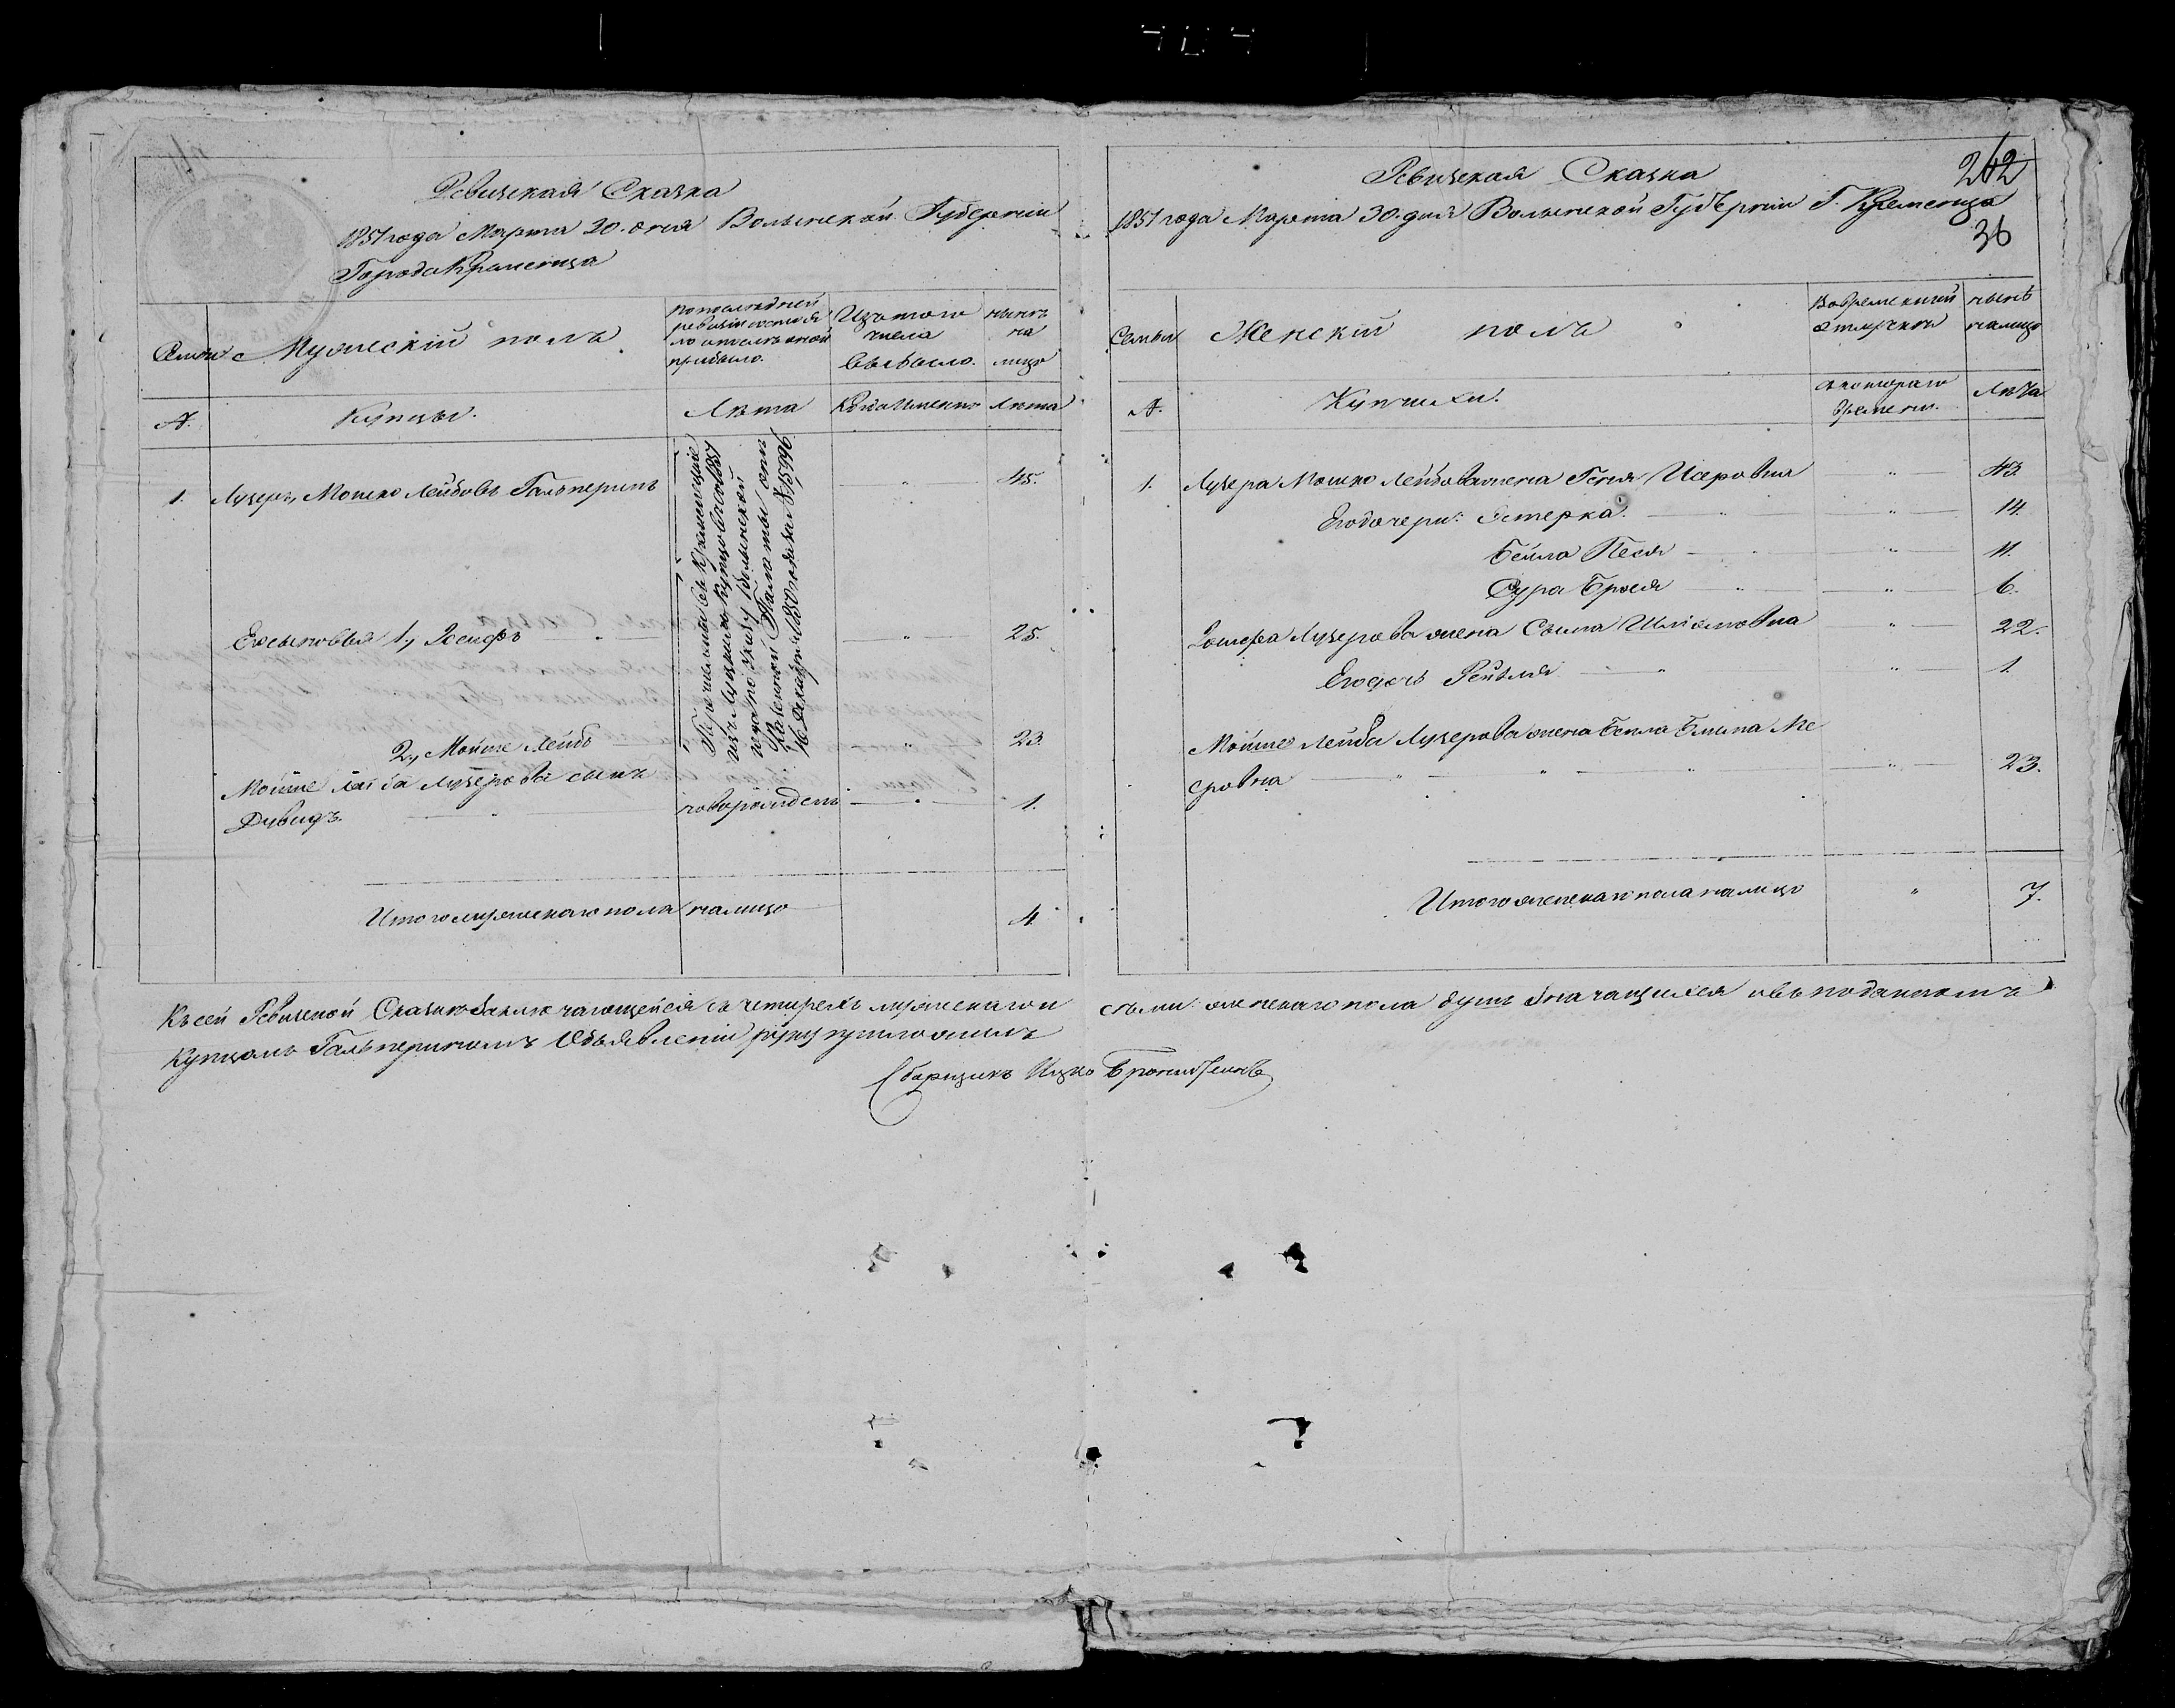 Ревизская Сказка
1851 года Марта 30. дня Волынской Губернии
Города Кременца
Семьи
Мужеский полъ
по последней
ревизіи состоя
ло и после оной
прибыло.
Изъ того
числа
выбыло.
нынѣ
на
лицо
№.
Купцы.
Лѣта
Когда Именно
Лѣта
1.
Лузеръ, Мошко Лейбовъ Гальперинъ
Перечислены въ Кременецкіе
изъ Луцкихъ Купцовъ съ 1851
года по Указу Волынской
Казенной Палаты отъ
16 Декабря 1850 года за № 15996
45.
Его сыновья 1, Іосифъ
25.
2, Мойше Лейбъ
23.
Мойше Лейба Лузерова сынъ
Дувидъ.
новорожденъ
1.
Итого мужескаго пола налицо
4.
Ревизская Сказка
242
1851 года Марта 30. дня Волынской Губерніи Г. Кременца
36
Семьи
Женскій полъ
Во временной
отлучкѣ
нынѣ
налицо
№.
Купчихи.
съ котораго
времени.
Лѣта
1.
Лузера Мошко Лейбова жена Геня Исеровна
43.
Его дочери: Эстерка.
14.
Бейла Песя
11.
Сура Брося
6.
Іосифа Лузерова жена Сыма Шліомовна
22.
Его дочь Рейзля
1.
Мойше Лейба Лузерова жена Бейла Ме
еровна
23.
Итого женскаго пола налицо
7.
Къ сей Ревизской Сказкѣ заключающейся въ четырехъ мужескаго и семи женскаго пола душъ значащихся въ поданномъ
Купцомъ Гальпериномъ Объявленіи руку приложилъ
Сборщикъ Ицко